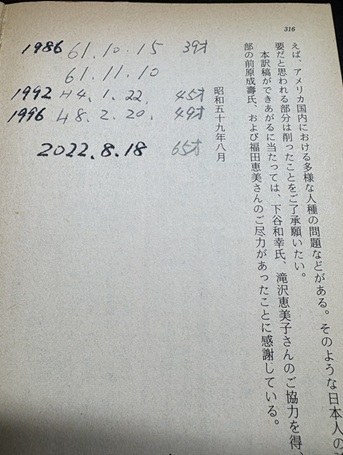 316
えば、アメリカ国内における多様な人種の問題などがある。そのような日本人の
要だと思われる部分は削ったことをご了承願いたい。
本訳稿ができあがるに当たっては、下谷和幸氏、滝沢恵美子さんのご協力を得、
部の前原成壽氏、および福田恵美さんのご尽力があったことに感謝している。
昭和五十九年八月
1986 61.10.15 39才
61.11.10
1992 H4.1.22. 45才
1996 H8.2.20. 49才
2022.8.18 65才